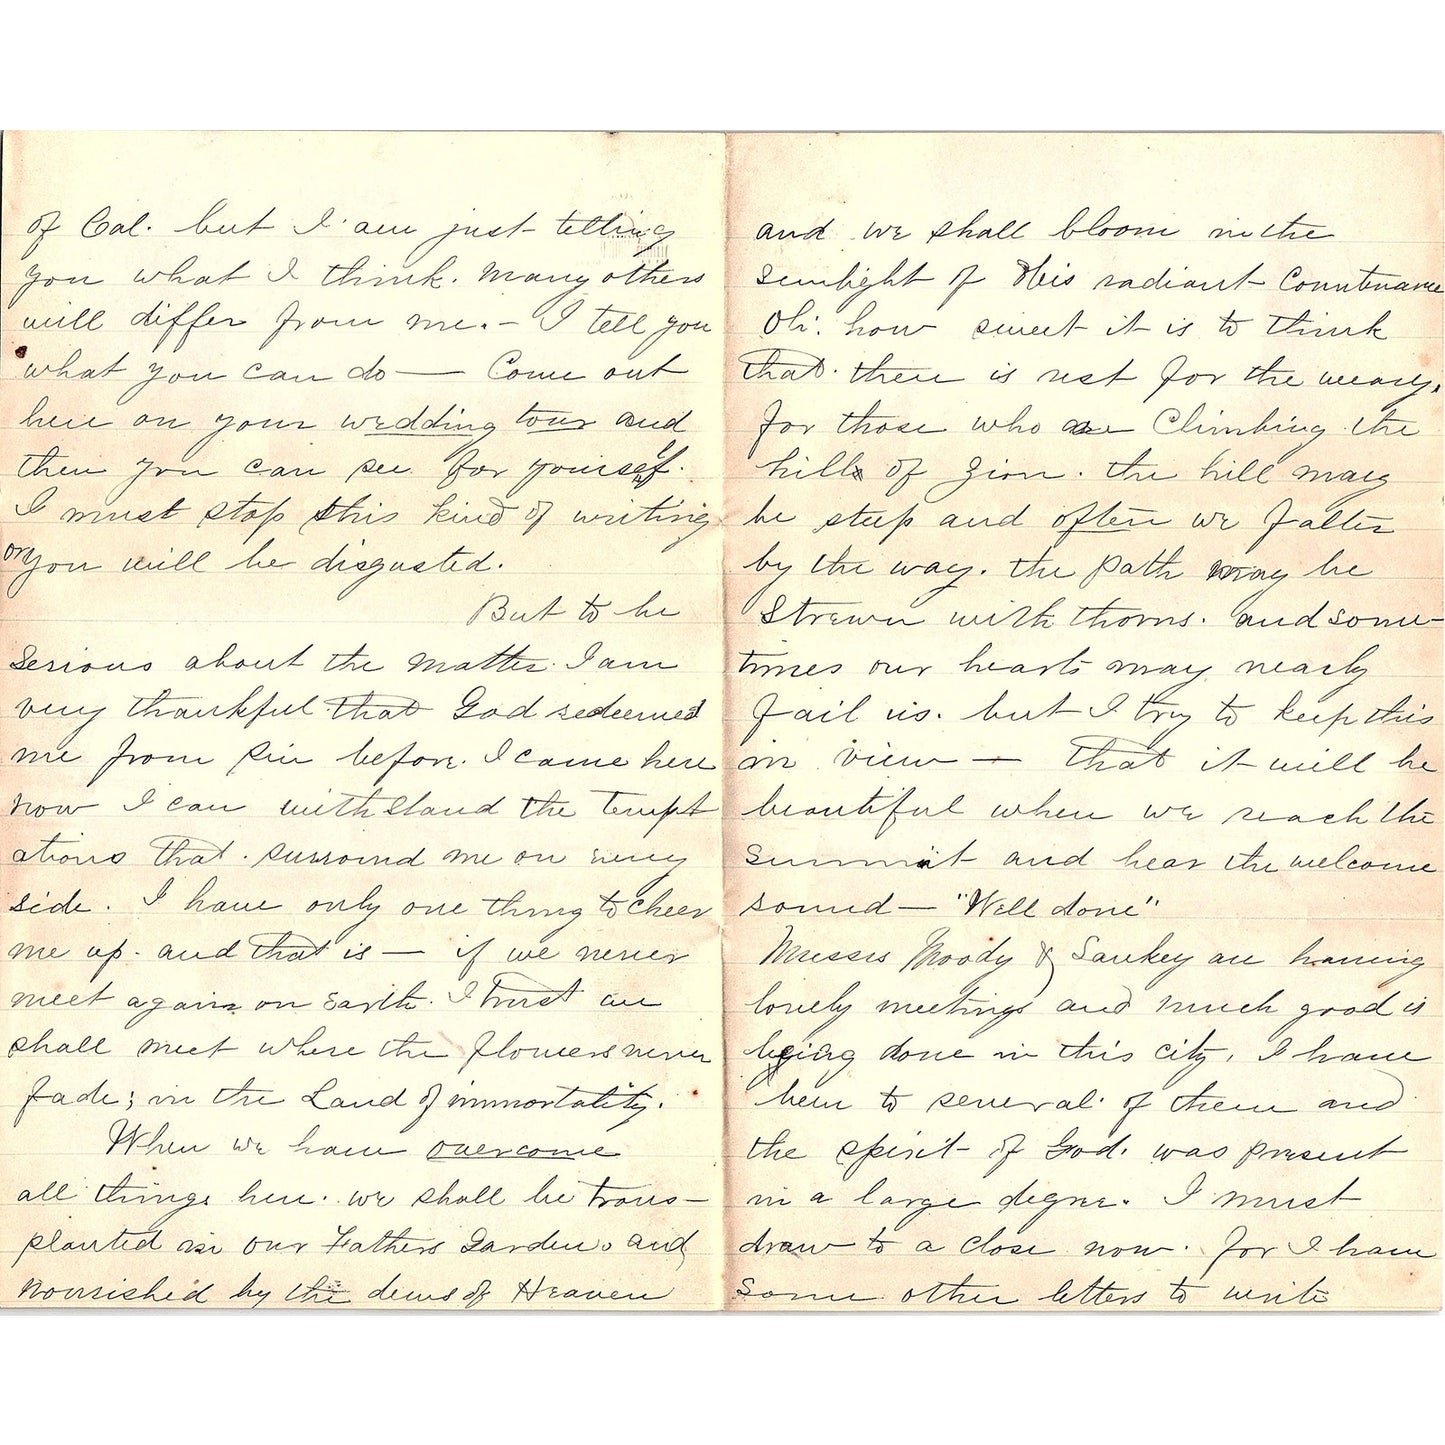 of Cal. but I am just telling
you what I think. Many others
will differ from me. – I tell you
what you can do — Come out
here on your wedding tour and
then you can see for yourself.
I must stop this kind of writing
or you will be disgusted.
But to be
serious about the matter. I am
very thankful that God redeemed
me from sin before. I came here
now I can withstand the tempt
ations that surround me on every
side. I have only one thing to cheer
me up. and that is — if we never
meet again on Earth. I trust we
shall meet where the flowers never
fade; in the Land of immortality.
When we have overcome
all things here. we shall be trans-
planted in our Fathers Garden. and
nourished by the dews of Heaven
and we shall bloom in the
sunlight of His radiant Countenance
Oh. how sweet it is to think
that there is rest for the weary.
for those who are Climbing the
hills of Zion. the hill may
be steep and often we falter
by the way. the path may be
strewn with thorns. and some-
times our hearts may nearly
fail us. but I try to keep this
in view — that it will be
beautiful when we reach the
summit and hear the welcome
sound — "Well done"
Messrs Moody & Sankey are having
lovely meetings and much good is
being done in this city. I have
been to several of them and
the spirit of God. was present
in a large degree. I must
draw to a close now. for I have
some other letters to write